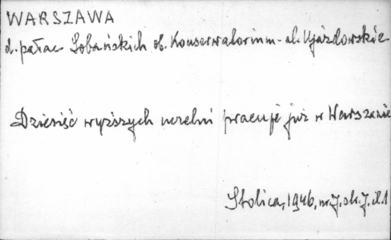 WARSZAWA
d. pałac Sobańskich ob. Konserwatorium - al. Ujazdowskie
Dziesięć wyższych uczelni pracuje już w Warszawie
Stolica, 1946, nr 7, str. 7, il. 1